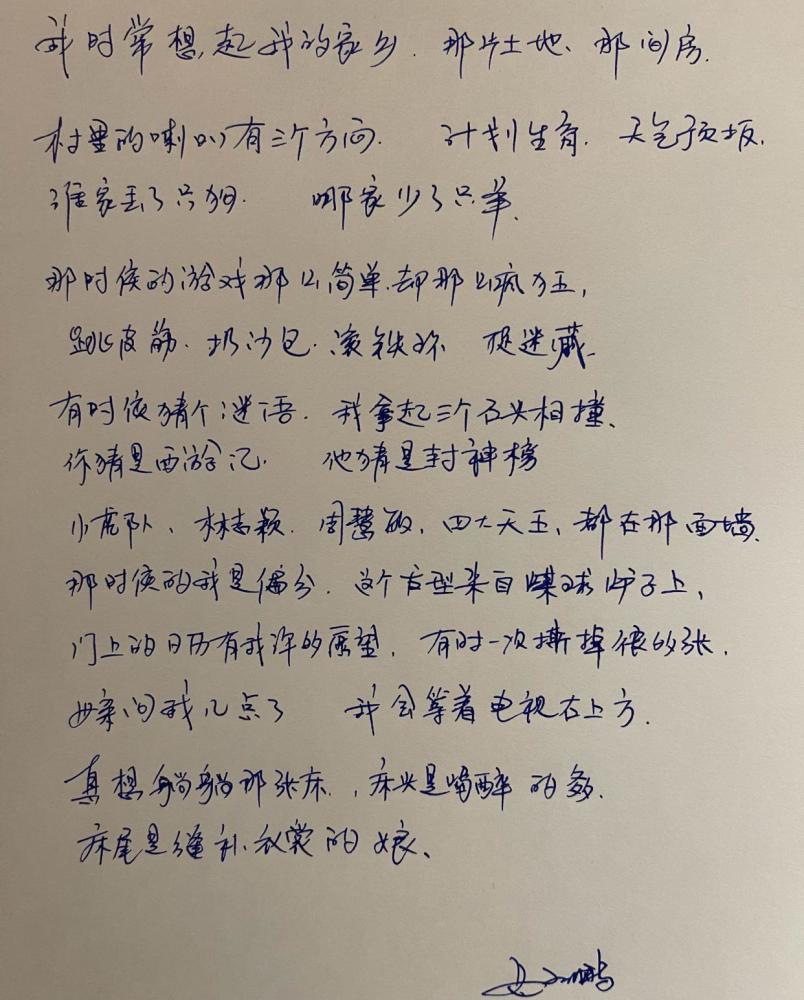 我时常想起我的家乡.那片土地、那间房.
村里的喇叭有三个方向. 计划生育. 天气预报.
谁家丢了只狗. 哪家少了只羊.
那时候的游戏那么简单.却那么疯狂,
跳皮筋.扔沙包.滚铁环 捉迷藏.
有时候猜个谜语.我拿起三个石头相撞.
你猜是西游记. 他猜是封神榜
小虎队、林志颖.周慧敏,四大天王,都在那面墙.
那时候的我是偏分.这个发型来自煤球炉子上,
门上的日历有我许的愿望,有时一次撕掉很多张.
母亲问我几点了 我会等着电视右上方.
真想躺躺那张床.,床头是喝醉的爹.
床尾是缝补衣裳的娘、